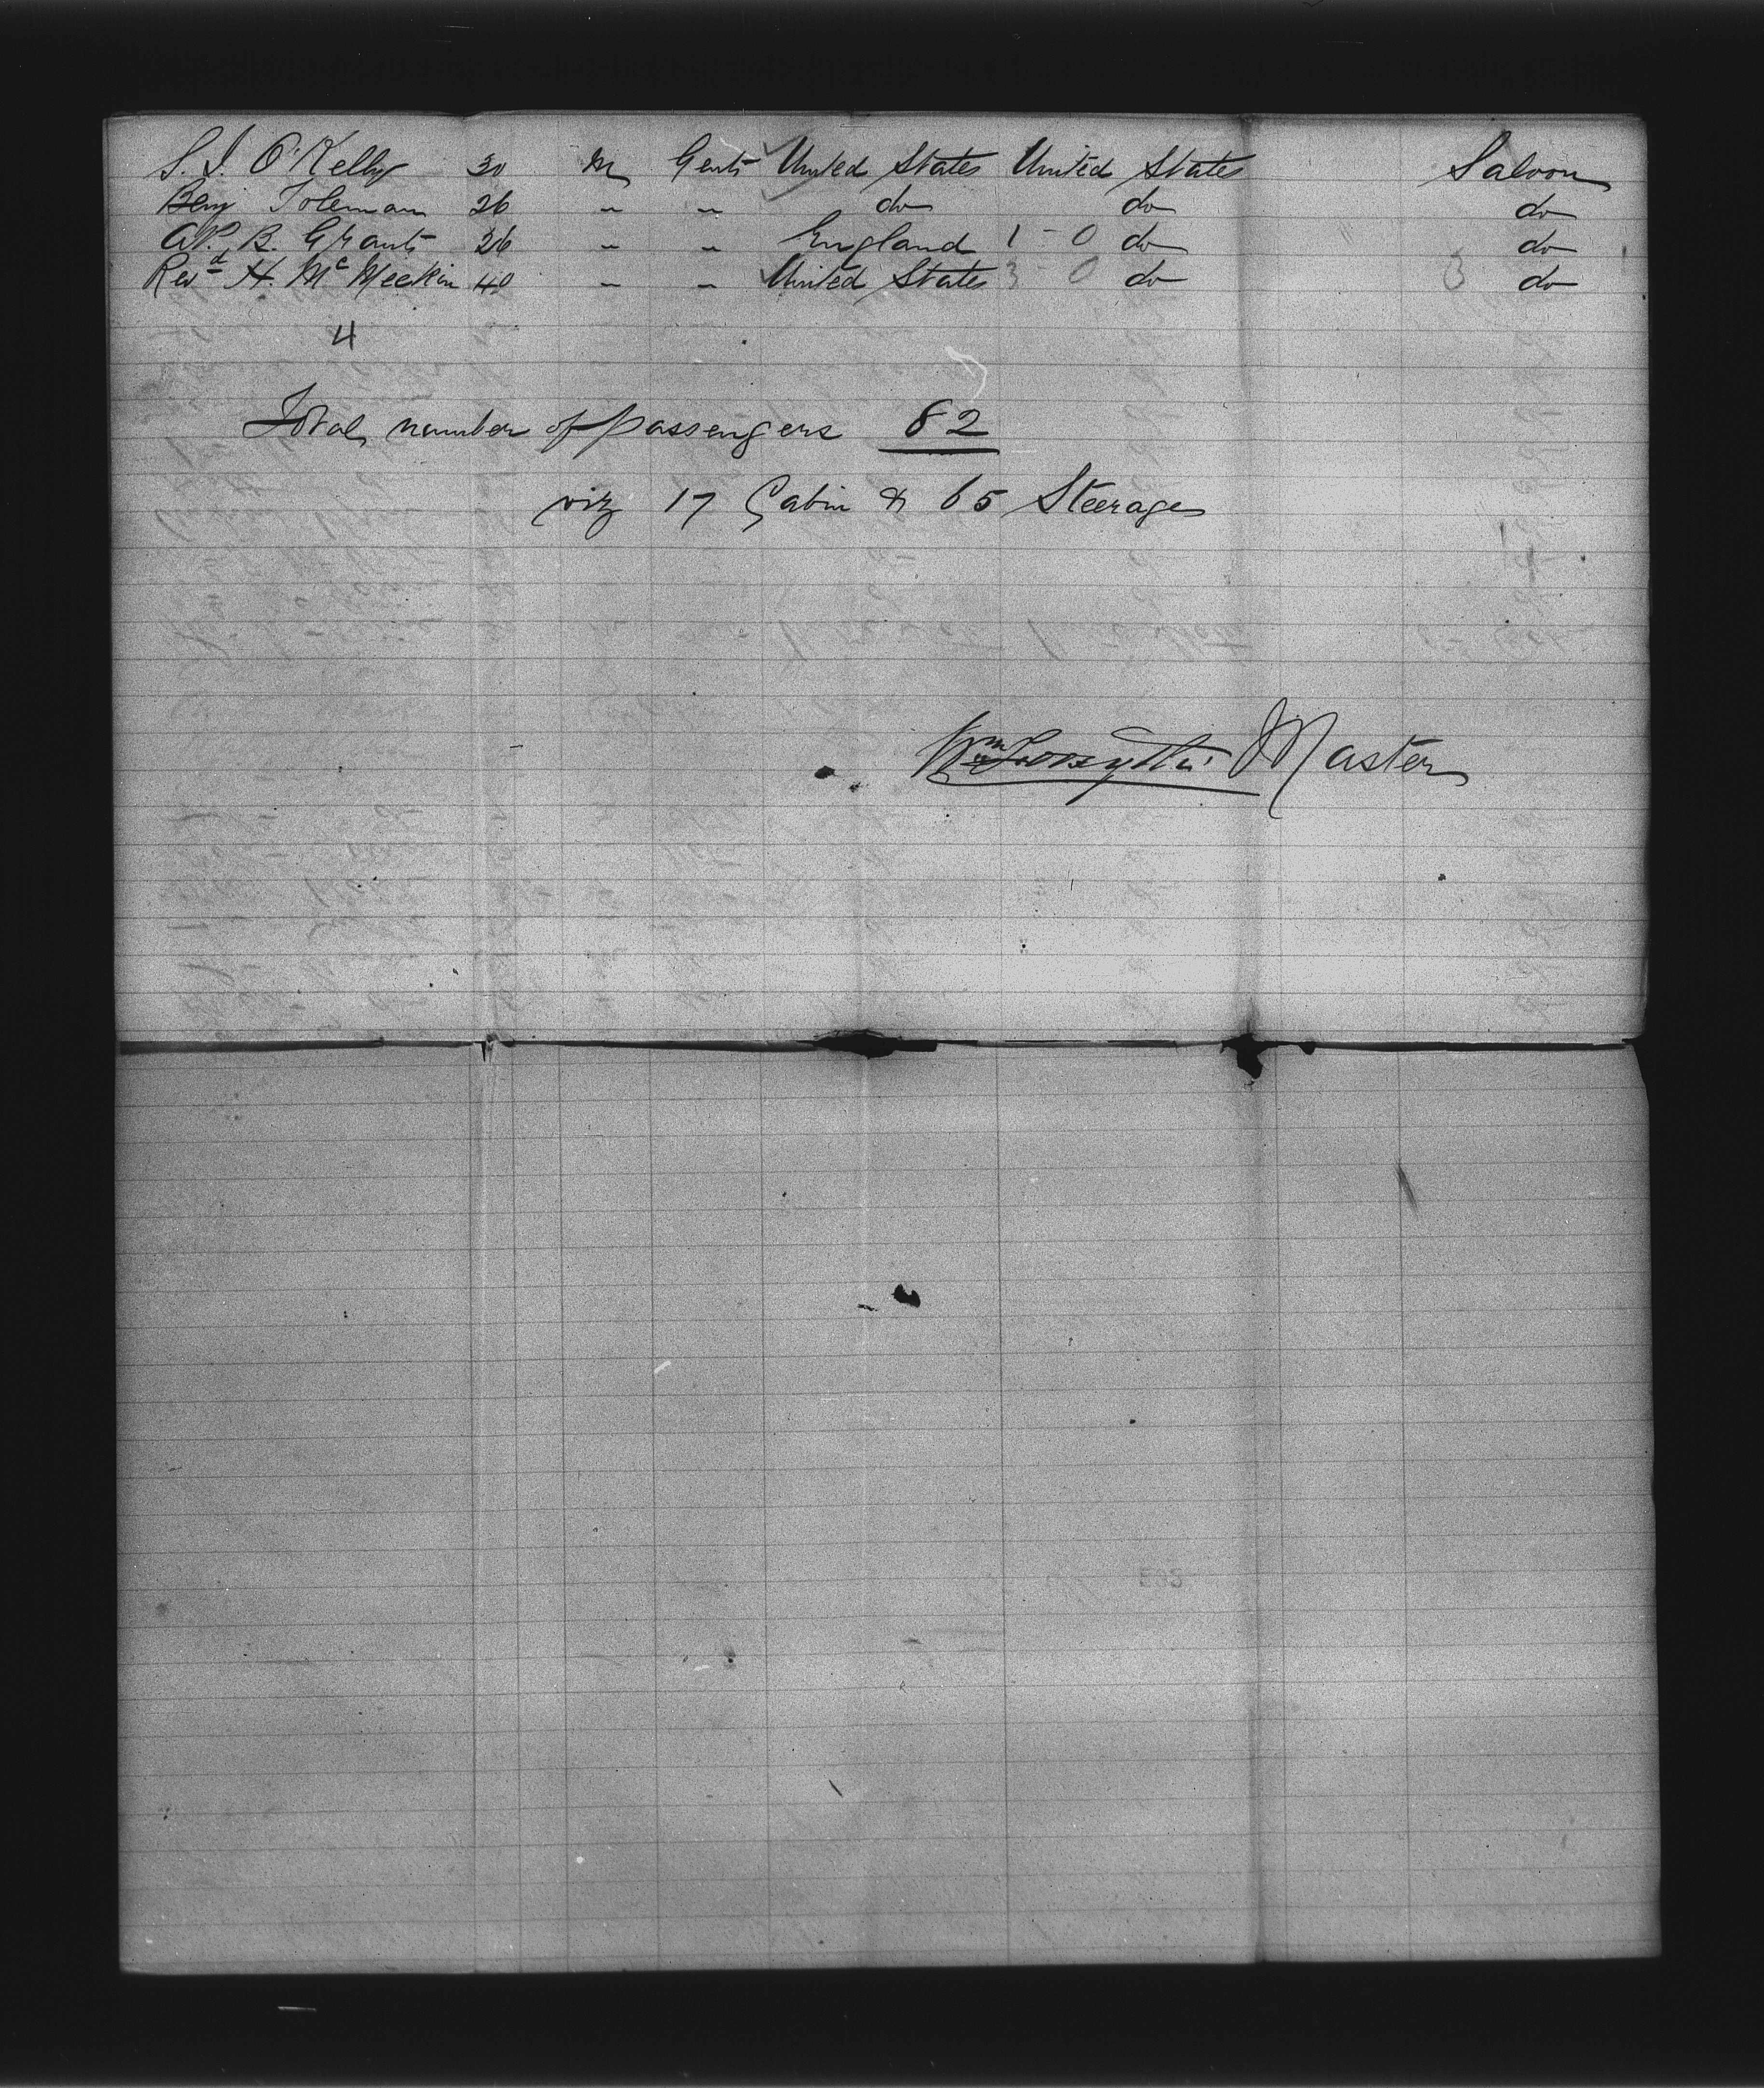 S. I. O'Kelly 30 M Gent United States United States Saloon
Benj Toleman 26 " " do do do
W. B. Grant 26 " " England 1 - 0 do do
Revd H. McMeekin 40 " " United States 3 0 do 3 do
4
Total number of passengers 82
viz 17 Cabin & 65 Steerage
Wm Forsyth Master